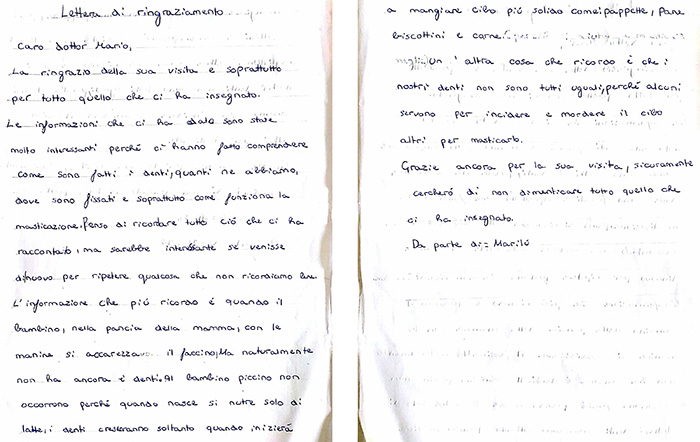 Lettera di ringraziamento
Caro dottor Mario,
La ringrazio della sua visita e soprattutto
per tutto quello che ci ha insegnato.
Le informazioni che ci ha dato sono state
molto interessanti perché ci hanno fatto comprendere
come sono fatti i denti, quanti ne abbiamo,
dove sono fissati e soprattutto come funziona la
masticazione. Penso di ricordare tutto ciò che ci ha
raccontato, ma sarebbe interessante se venisse
dinuovo per ripetere qualcosa che non ricordiamo bene.
L'informazione che più ricordo è quando il
bambino, nella pancia della mamma, con le
manine si accarezzava il faccino, Ma naturalmente
non ha ancora i denti. Al bambino piccino non
occorrono perché quando nasce si nutre solo di
latte, i denti cresceranno soltanto quando inizierá
a mangiare cibo più solido come: pappette, pane
biscottini e carne.
Un'altra cosa che ricordo è che i
nostri denti non sono tutti uguali, perché alcuni
servono per incidere e mordere il cibo
altri per masticarlo.
Grazie ancora per la sua visita, sicuramente
cercheró di non dimenticare tutto quello che
ci ha insegnato.
Da parte di: Marilù